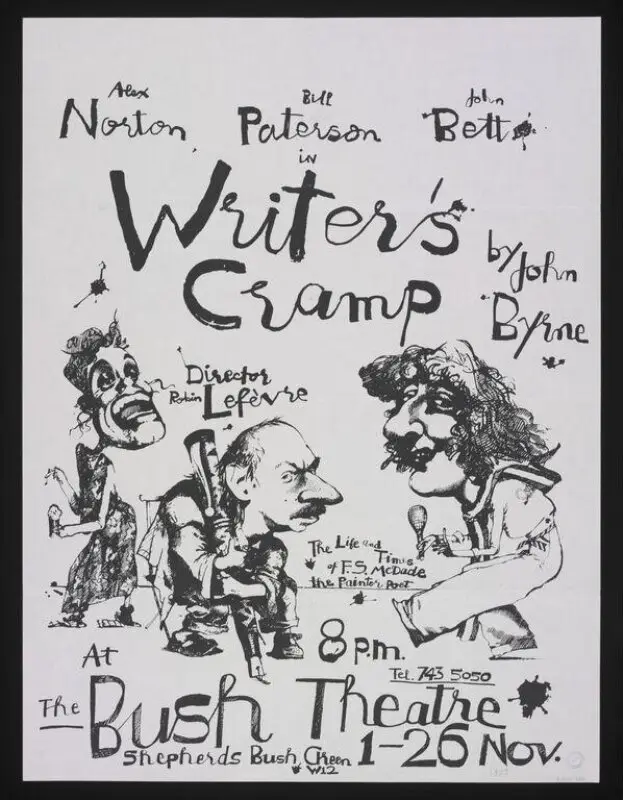 Alex Bill John
Norton Paterson Bett
in
Writer's
Cramp
by John
Byrne
Director
Robin Lefèvre
The Life and
Times
of F.S. McDade
the Painter Poet
8 p.m.
At
Tel. 743 5050
The Bush Theatre
Shepherds Bush Green
W12
1-26 Nov.